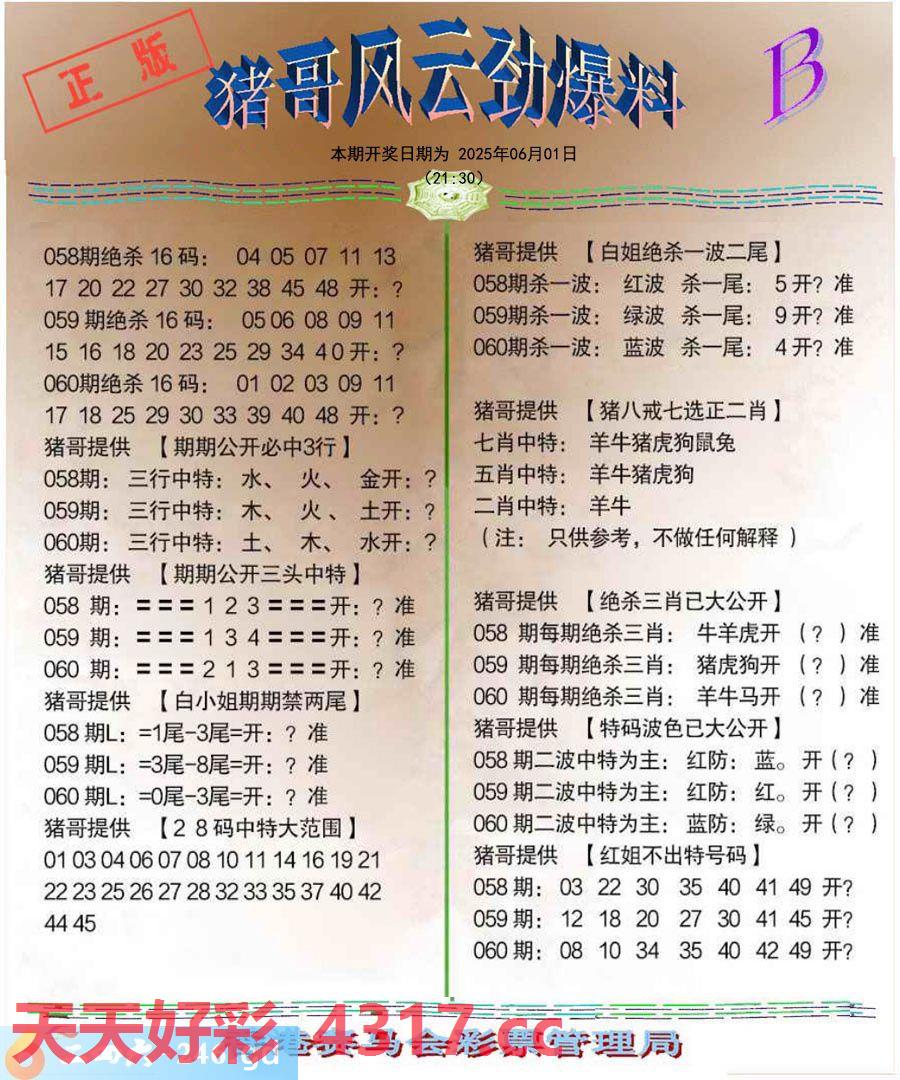 正版
猪哥风云劲爆料
B
本期开奖日期为 2025年06月01日
(21:30)
058期绝杀 16 码： 04 05 07 11 13
17 20 22 27 30 32 38 45 48 开：?
059 期绝杀 16 码： 05 06 08 09 11
15 16 18 20 23 25 29 34 40 开：?
060期绝杀 16 码： 01 02 03 09 11
17 18 25 29 30 33 39 40 48 开：?
猪哥提供 【期期公开必中3行】
058期：三行中特：水、 火、 金开：?
059期：三行中特：木、 火 、 土开：?
060期：三行中特：土、 木、 水开：?
猪哥提供 【期期公开三头中特】
058 期：===1 2 3===开：? 准
059 期：===1 3 4===开：? 准
060 期：===2 1 3===开：? 准
猪哥提供 【白小姐期期禁两尾】
058 期L：=1尾-3尾=开：? 准
059 期L：=3尾-8尾=开：? 准
060 期L：=0尾-3尾=开：? 准
猪哥提供 【2 8 码中特大范围】
01 03 04 06 07 08 10 11 14 16 19 21
22 23 25 26 27 28 32 33 35 37 40 42
44 45
猪哥提供 【白姐绝杀一波二尾】
058期杀一波： 红波 杀一尾： 5 开? 准
059期杀一波： 绿波 杀一尾： 9 开? 准
060期杀一波： 蓝波 杀一尾： 4 开? 准
猪哥提供 【猪八戒七选正二肖】
七肖中特： 羊牛猪虎狗鼠兔
五肖中特： 羊牛猪虎狗
二肖中特： 羊牛
（注： 只供参考，不做任何解释 ）
猪哥提供 【绝杀三肖已大公开】
058 期每期绝杀三肖： 牛羊虎开 （? ）准
059 期每期绝杀三肖： 猪虎狗开 （? ）准
060 期每期绝杀三肖： 羊牛马开 （? ）准
猪哥提供 【特码波色已大公开】
058 期二波中特为主：红防：蓝。开（? ）
059 期二波中特为主：红防：红。开（? ）
060 期二波中特为主：蓝防：绿。开（? ）
猪哥提供 【红姐不出特号码】
058 期： 03 22 30 35 40 41 49 开?
059 期： 12 18 20 27 30 41 45 开?
060 期： 08 10 34 35 40 42 49 开?
天天好彩 4317.cc
港赛马会彩票管理局